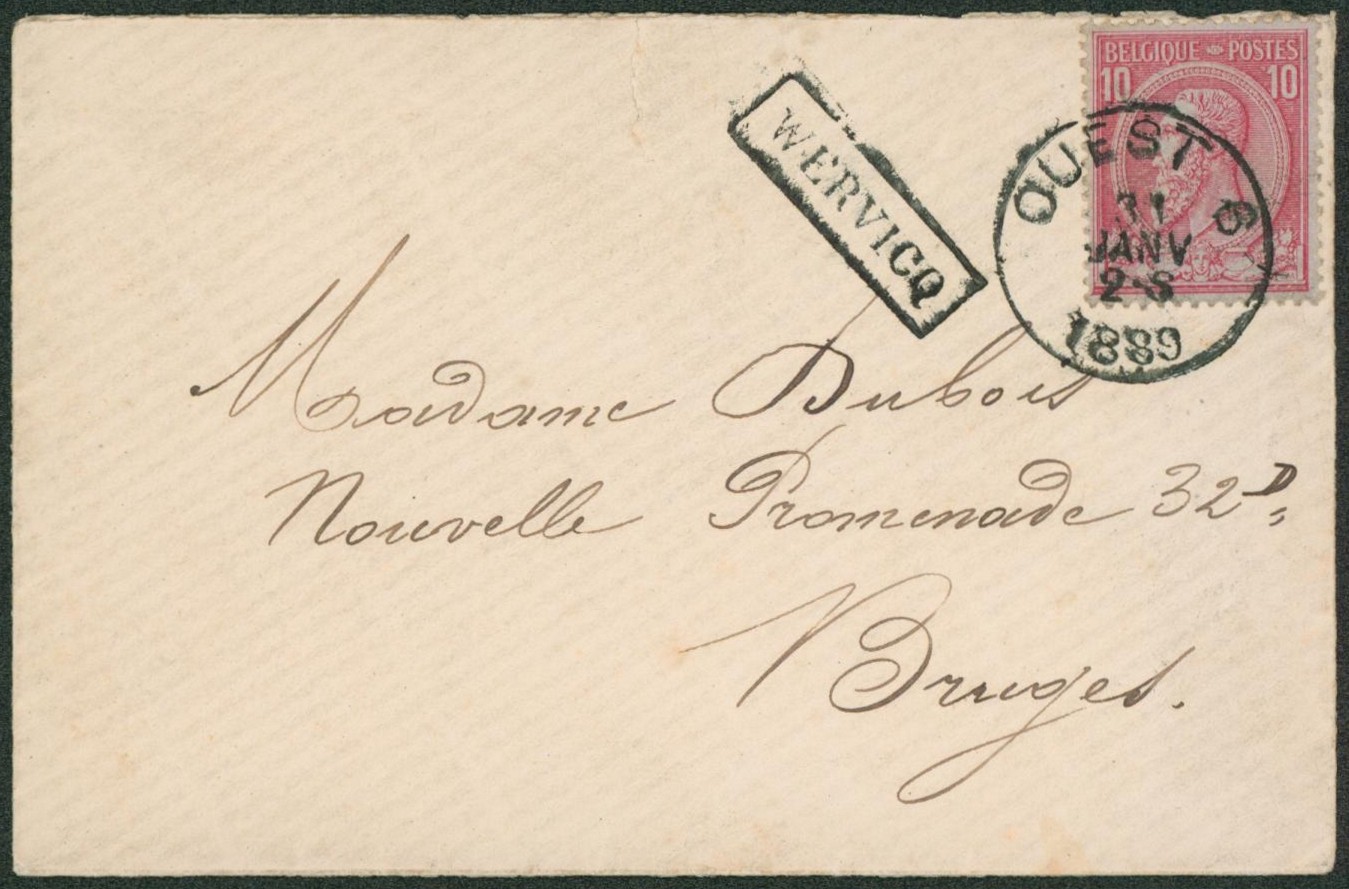 BELGIQUE POSTES
10 10
WERVICQ
OUEST 6
31
JANV
2-S
1889
Madame Dubois
Nouvelle Promenade 32D
Bruges.